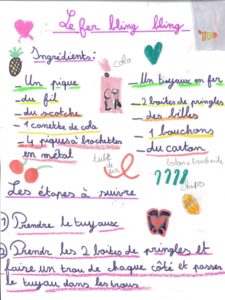 Le fer bling bling
Ingrédients:
cola
Un pique
Un tuyaux en fer
_ du fil
_ 2 boites de pringles
_ du scotche
_ des billes
_ 1 canette de cola
_ 1 bouchons
_ 4 piques à brochettes
en métal
_ du carton
tube
de
fer
Chips
Les étapes à suivre
1) Prendre le tuyaux
2) Prendre les 2 boites de pringles et
faire un trou de chaque côté et passer
le tuyau dans les trous